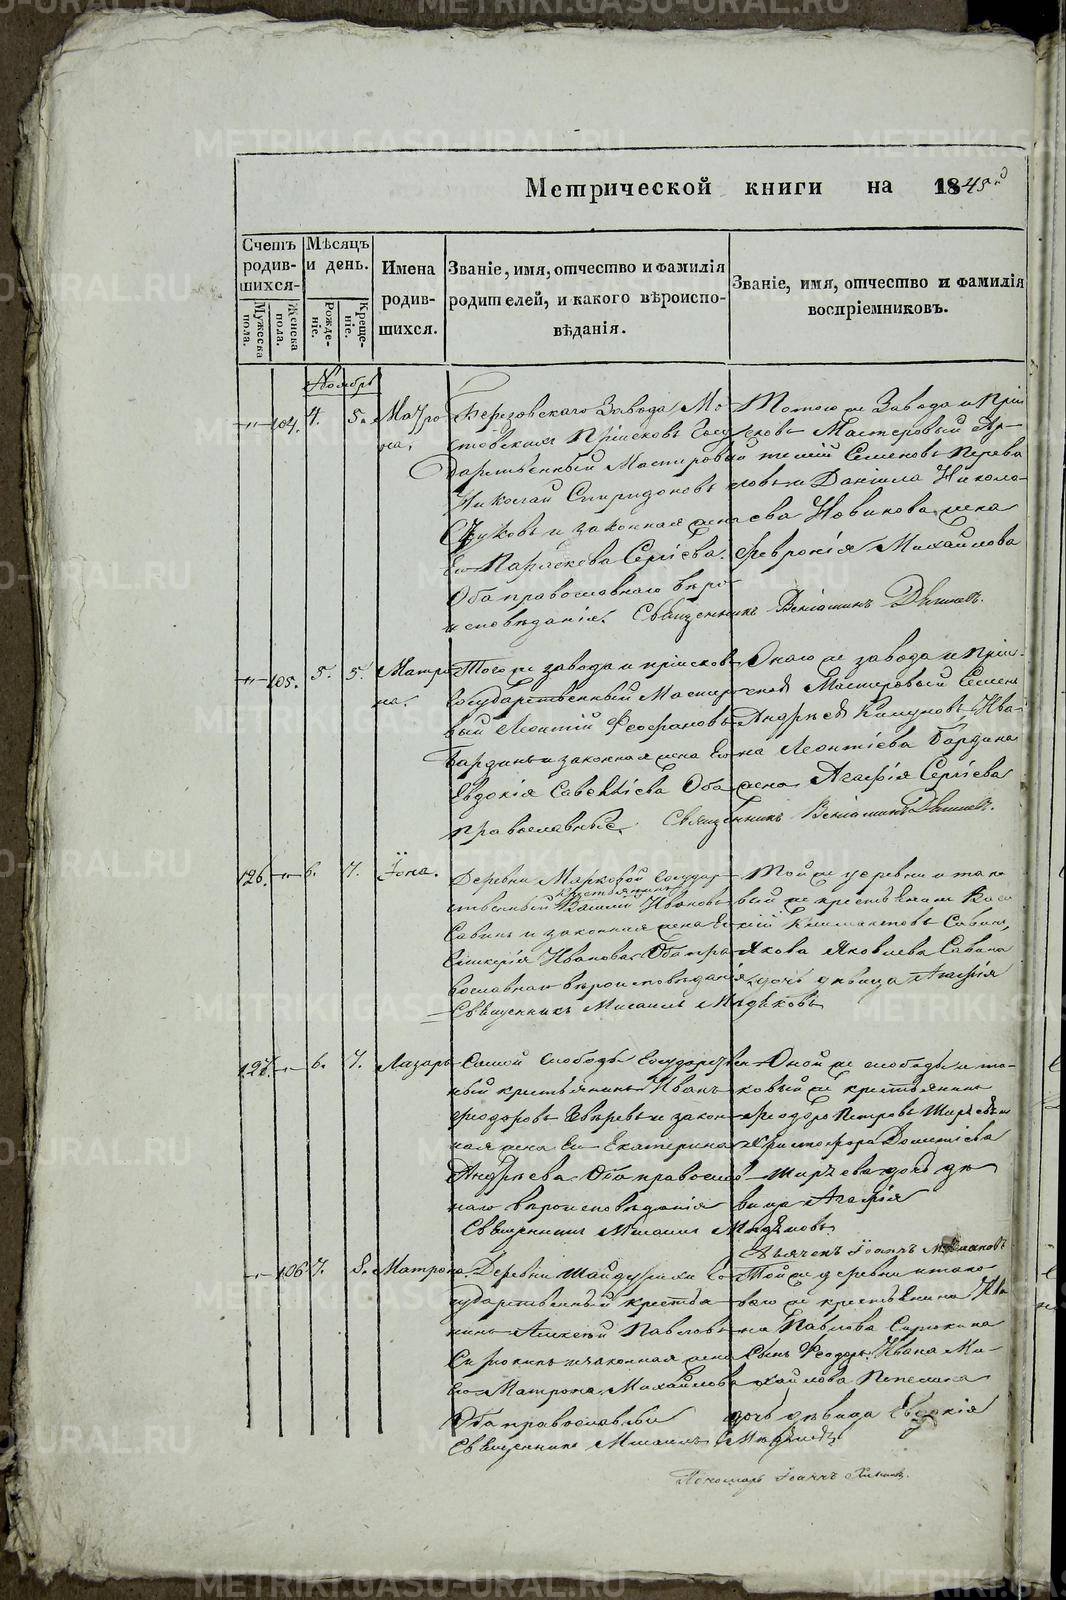 Метрической книги на 1845й
Счетъ родив-шихся.
Мѣсяцъ и день.
Имена родив-шихся.
Званіе, имя, отчество и фамилія
родителей, и какого вѣроиспо-
вѣданія.
Званіе, имя, отчество и фамилія
воспріемниковъ.
Мужеска пола.
Женска пола.
Рожде-ніе.
Креще-ніе.
Ноябрь
104. 4. 5. Матро
на.
Березовскаго Завода Мо
стовскихъ Пріисковъ Госу
дарственный Мастеровый
Николай Спиридоновъ
и законная жена
Его Параскева Сергіева
Оба православнаго вѣро
исповѣданія. Священникъ Веніаминъ
Того же Завода и Прі
исковъ Мастеровый
Семеновъ
и Даніила Никола
ева Новикова жена
Феронія Михайлова
105. 5. 5. Матро
на.
Того же завода и пріисковъ
Государственный Мастеро
вый Леонтій Феофановъ
Бардинъ и законная жена Его
Евдокія Савельіева Оба
православные. Священникъ Веніаминъ
Онаго же завода и Прі
Мастеровый Семенъ
Андрѣевъ Ива
на Леонтіева Бардина
жена Агафія Сергіева
126. 6. 7. Іона.
Деревни Марковой Государ
крестьянинъ
ственный Василій Ивановъ
Савинъ и законная жена Его
Гликерія Иванова Оба пра
вославнаго вѣроисповѣданія
Священникъ Мисаилъ
Той же деревни и тако
вый же крестьянинъ Васи
лій Климентовъ Савинъ,
Якова Яковлева Савина
дочь дѣвица Агафія
127. 6. 7. Лазарь
слободы Государствен
ный крестьянинъ Иванъ
Феодоровъ Звѣревъ и закон
ная жена Его Екатерина
Андрѣева Оба православ
наго вѣроисповѣданія
Священникъ Мисаилъ
Оной же слободы и та
ковый же крестьянинъ
Феодоръ Петровъ
Христофора
дочь дѣ
вица Агафія
Дьячекъ Іоаннъ
106 7. 8. Матрона.
Деревни Шайдурихи Го
сударственный крестья
нинъ Алексѣй Павловъ
Сирюкинъ и законная жена
Его Матрона Михайлова
Оба православные
Священникъ Мисаилъ
Той же деревни и тако
ваго же крестьянина Ива
на Павлова Сирюкина
сынъ Феодоръ. Ивана Ми
хайлова Пепелина
дочь дѣвица Евдокія
Пономарь Іоаннъ
METRIKI.GASO-URAL.RU